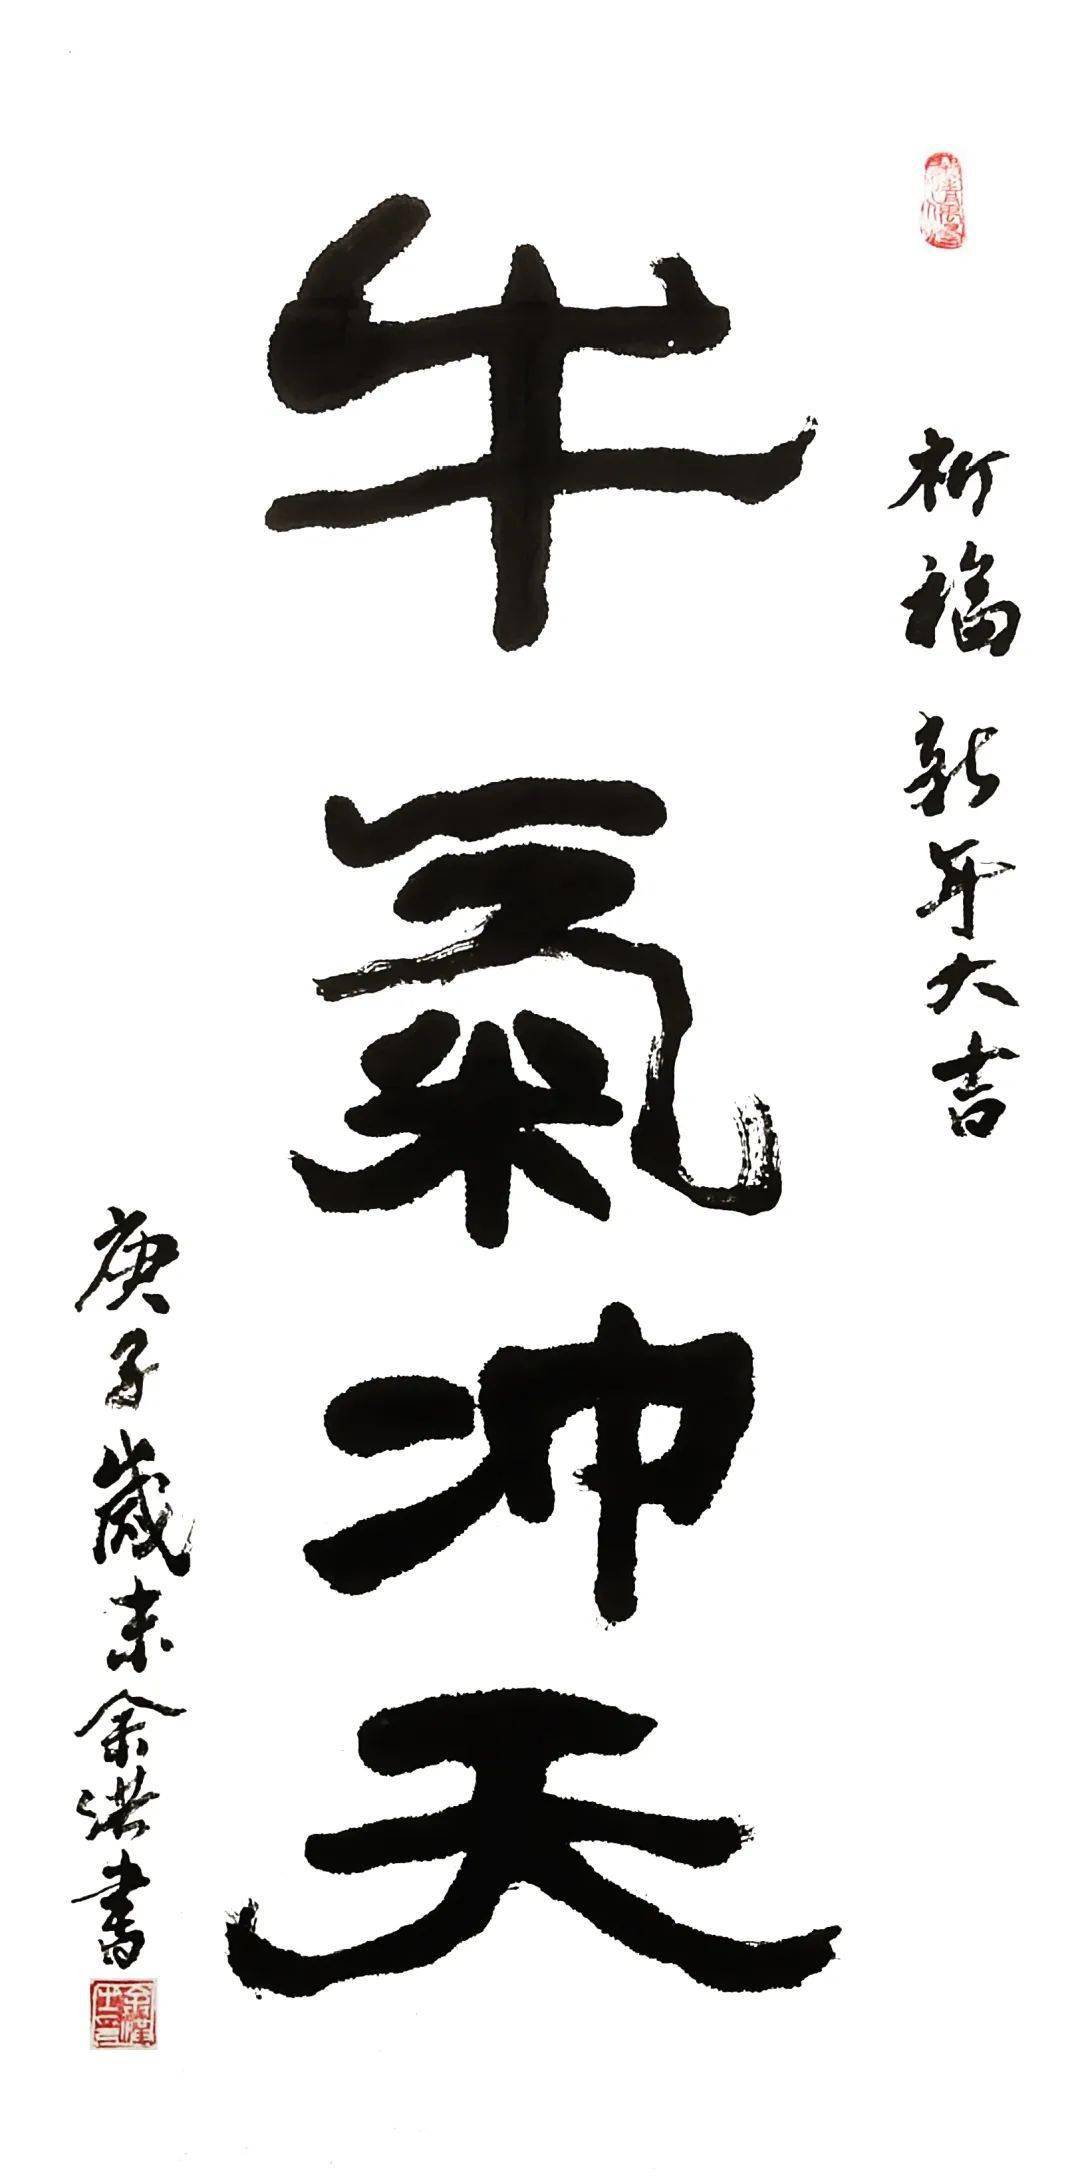 祈福新年大吉
牛氣冲天
庚子歲末余洪書